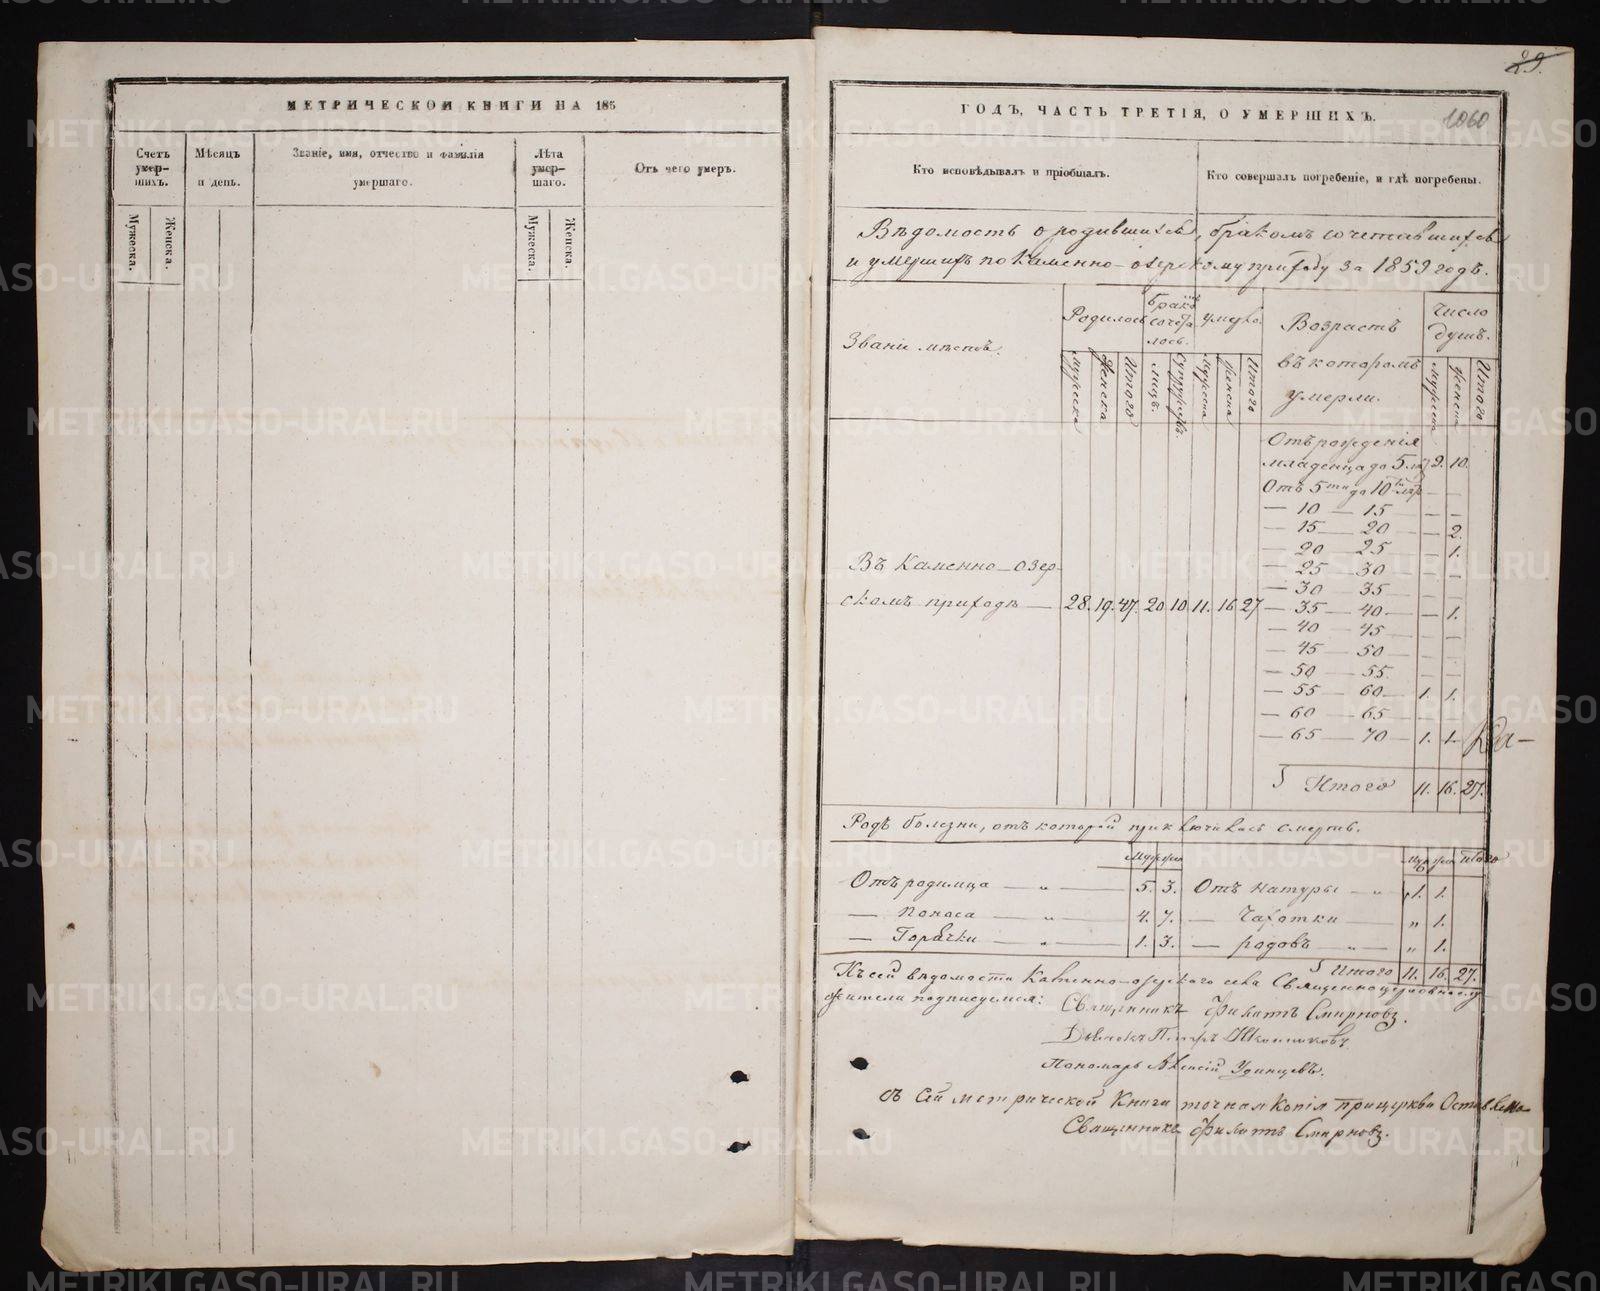 МЕТРИЧЕСКОЙ КНИГИ НА 185
Счетъ умер-шихъ.
Мужеска.
Женска.
Мѣсяцъ и день.
Званіе, имя, отчество и фамилія умершаго.
Лѣта умер-шаго.
Мужеска.
Женска.
Отъ чего умеръ.
29.
1060
ГОДЪ, ЧАСТЬ ТРЕТІЯ, О УМЕРШИХЪ.
Кто исповѣдывалъ и пріобщалъ.
Кто совершалъ погребеніе, и гдѣ погребены.
Вѣдомость о родившихся, бракомъ сочетавшихся
и умершихъ по Каменно-озерскому приходу за 1859 годъ.
Званіе мѣстъ.
Родилось
Мужеска
Женска
Итого
Бракомъ сочета лось.
Лицъ.
Супружествъ.
Умерло.
Мужеска
Женска
Итого
Возрастъ въ которомъ умерли.
Число душъ.
Мужеска
Женска
Итого
Отъ рожденія
младенца до 5 лѣтъ 9. 10.
Отъ 5ти до 10ти лѣтъ — —
— 10 — 15 — —
— 15 — 20 — 2.
— 20 — 25 — 1.
— 25 — 30 — —
— 30 — 35 — —
— 35 — 40 — 1.
— 40 — 45 — —
— 45 — 50 — —
— 50 — 55. — —
— 55 — 60 — 1. 1.
— 60 — 65 — —
— 65 — 70 — 1. 1.
Въ Каменно-озер-
скомъ приходѣ — 28. 19. 47. 20 10. 11. 16 27
Итого 11. 16. 27.
Родъ болезни, отъ которой приключилась смерть.
Муж жен
Муж жен Итого
Отъ родимца — „ — 5. 3. Отъ натуры — „ 1. 1.
— Поноса — „ — 4. 7. — Чахотки — „ 1.
— Горячки — „ — 1. 3. — родовъ — „ — „ 1.
Итого 11. 16. 27.
Къ сей вѣдомости Каменно-озерского села Священноцерковнослу
жители подписуемся: Священникъ Филатъ Смирновъ.
Дьячокъ Петръ Иконниковъ
Пономарь Алексій Удинцевъ.
Съ Сей метрической Книги точная Копія при церкви Оставлена
Священникъ Филатъ Смирновъ.
METRIKI.GASO-URAL.RU